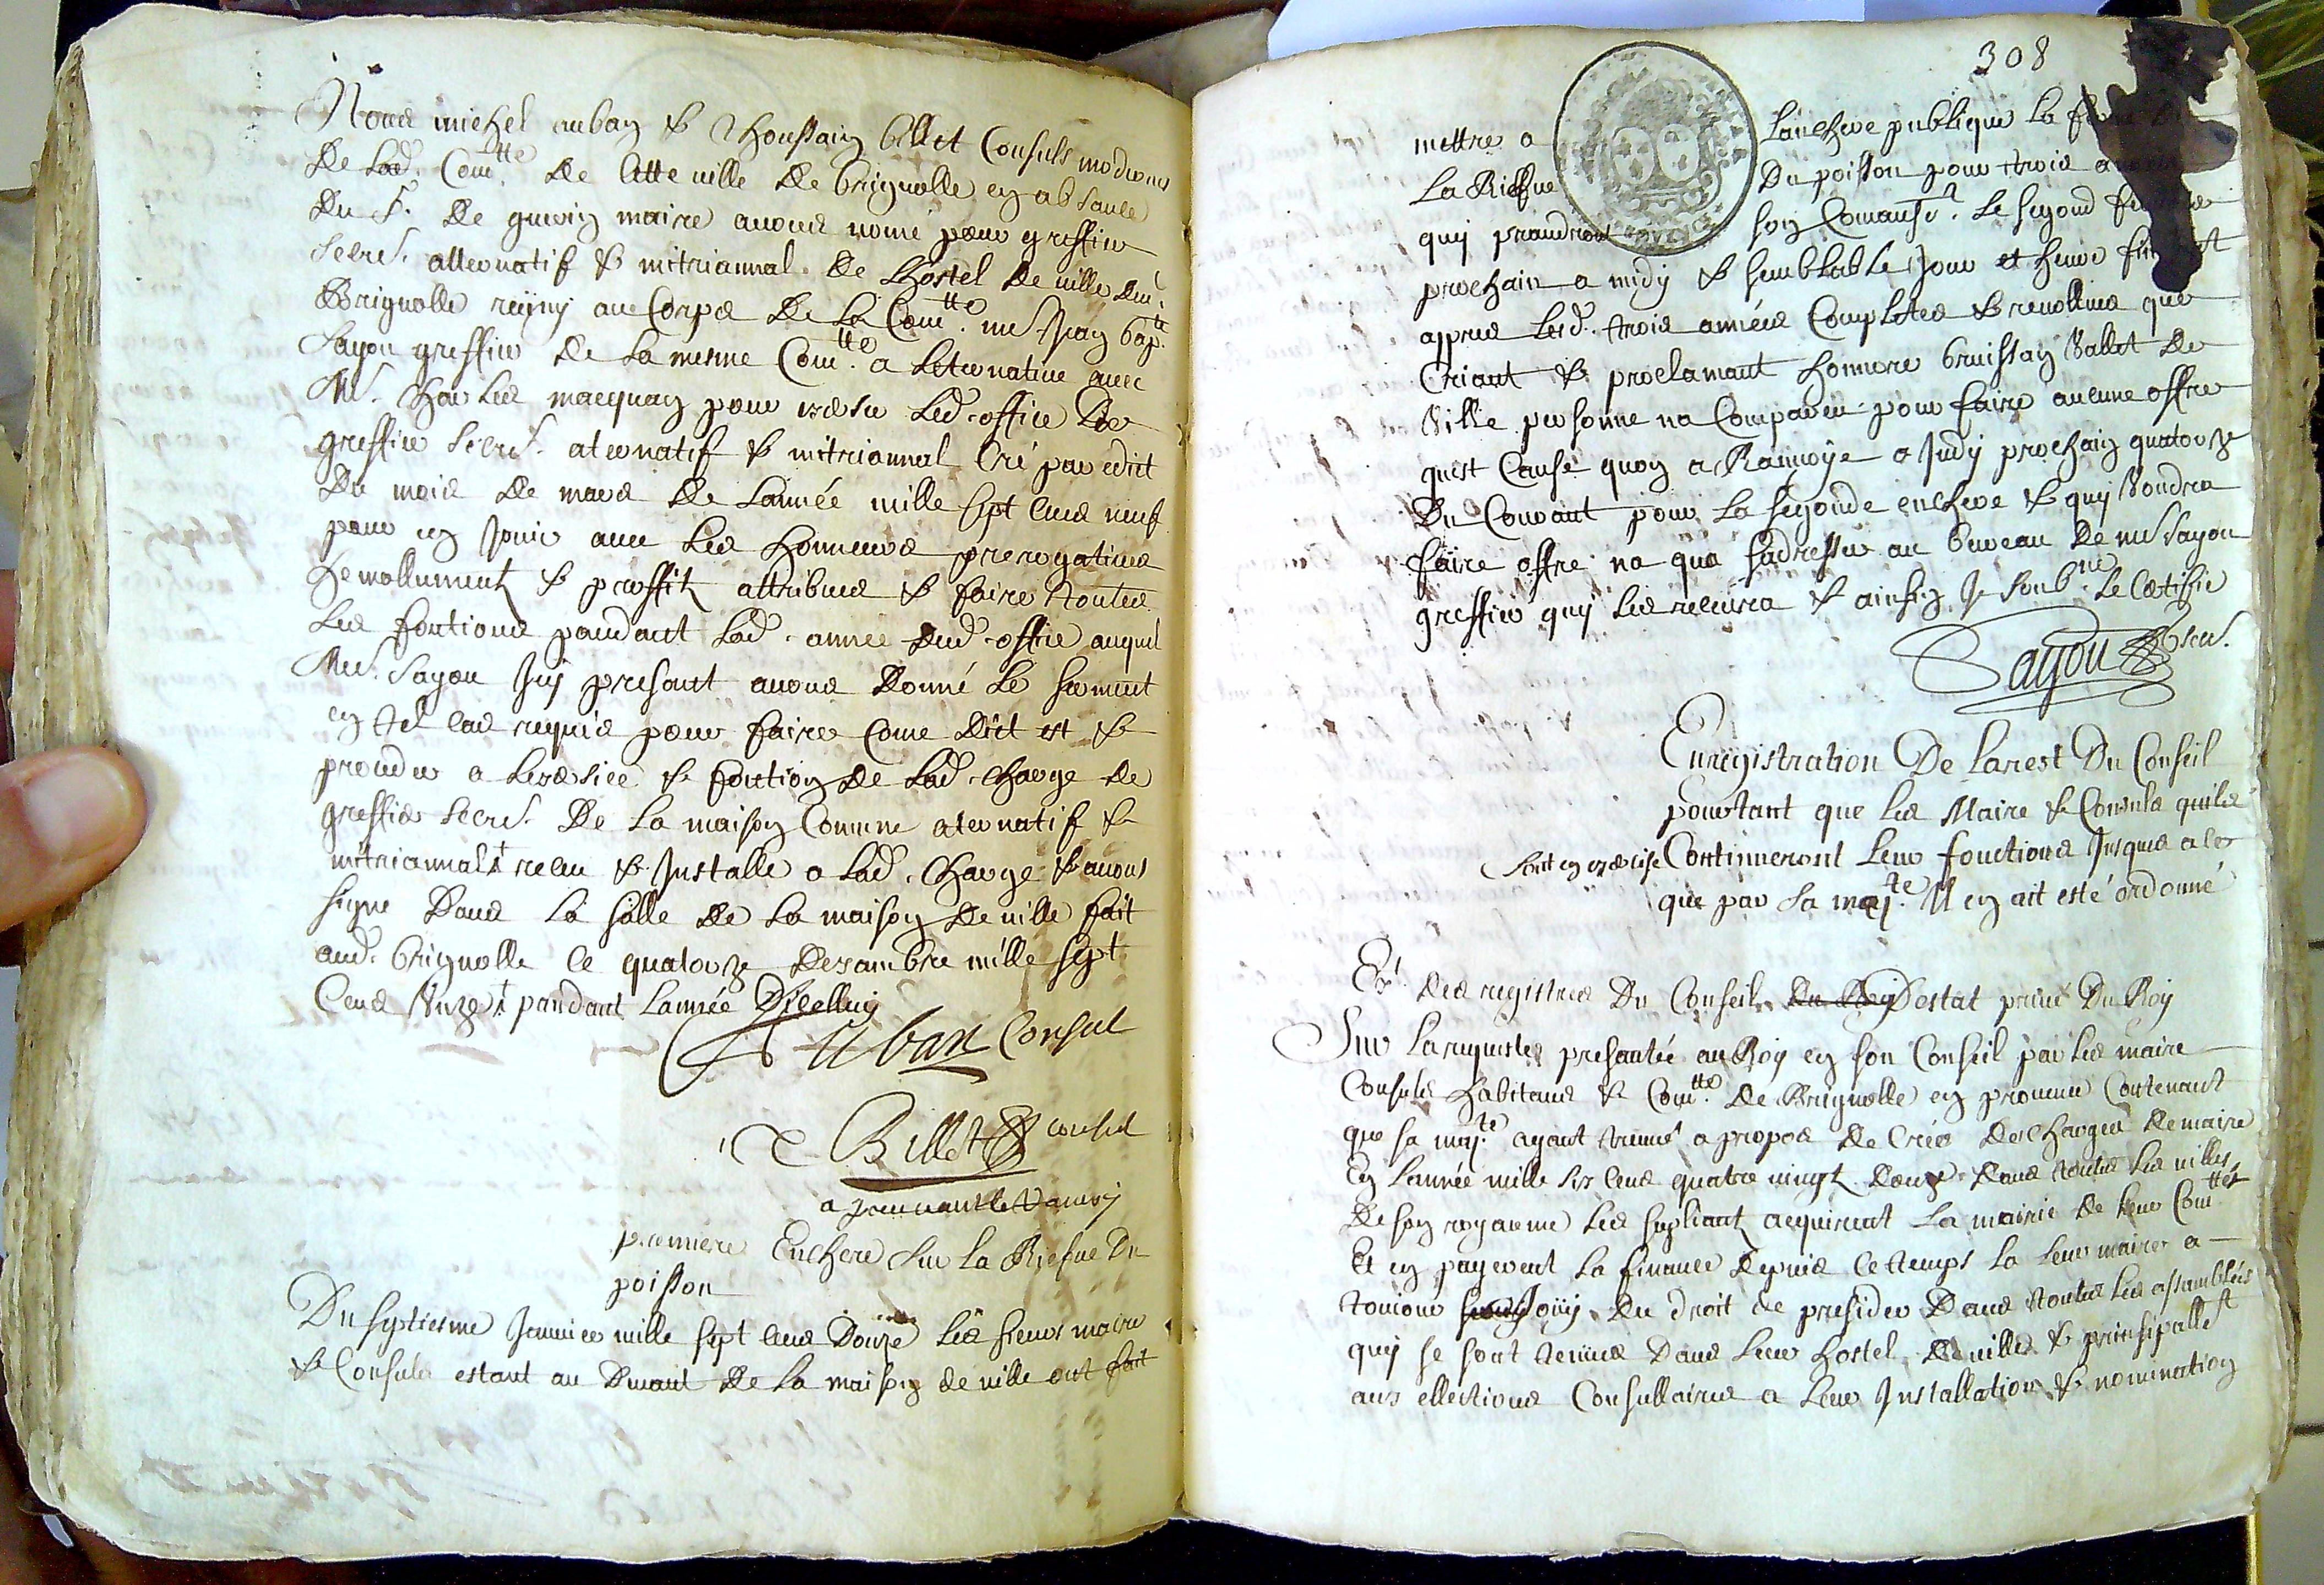 Nous michel auban & Thoussain billet Consuls modernes
De lad. Com.tte De cette ville De brignolle en absance
Du Sr. De guerin maire avons nomé pour greffier
Secre. alternatif & mitriannal De Lhostel De ville dud.
Brignolle reüny au Corps De La Com.tte me Jean bap.te
Sayou greffier De La mesme Com.tte a Laternative avec
Me. Charles maequan pour exerser Led. office De
greffier Secre. aternatif & mitriannal Cré par edict
Du mois De mars De Lannée mille sept Cens neuf
pour en Jouir avec Les Honneurs prerogatives
hemolluments & proffits attribués & faire Toutes
Les fontions pandant Lad. annee Dud. office auquel
Me. Sayou Icy presant avons Donné Le serment
en tel cas requis pour faire Come Dict est &
prendre a Lexersice & fontion De Lad. Charge De
greffier Secre. De La maison Comune aternatif &
mitriannal† reseu & Installe a Lad. Charge & avons
signe Dans La salle De La maison De ville fait
aud. brignolle Ce quatorze Desambre mille sept
Cens Unze † pandant Lannée Dicelluy
Auban Consul
Billet consul
premiere Enchere sur La Riesue Du
poisson
Du septiesme Janvier mille sept cens Douze Les sieurs maire
& Consuls estant au Devant De La maison de ville ont fait
308
mettre a Lanchere publique La
La Riesue Du poisson pour trois
quy prandront son Comanset. Le segond
prochain a midy & semblable Jour et heure
appres Lesd. trois années Completes & revollues que
Criant & proclamant honnore bruissan Vallet De
Ville personne na Comparu pour faire aucune offre
quest Cause quon a Ranvoye a Judy prochain quatorze
Du Courant pour La segonde enchere & quy Voudra
faire offre na qua sadresser au bureau De me Sayou
greffier quy Les recevra & ainsin Je soub.né Le Certifie
Sayou secre.
Enregistration De Larest Du Conseil
pourtant que Les Maire & Consuls quils
sont en exercise Continueront Leur fonctions Jusques a ce
que par sa maj.te Il en ait esté ordonné
Ext. Des registres Du Conseil Du Roy Destat privé Du Roy
Sur Larequeste presantée au Roy en son Conseil par Les maire
Consuls habitans & Com.tte De Brignolle en provence Contenant
que sa maj.te ayant treuvé a propos De Créer Des Charges De maire
En Lannée mille six Cens quatre vingts Douze Dans toutes Les villes
De son royaume Les supliants acquirent La mairie De Leur Com.ttés
Et en payerent La finance Depuis Ce temps La Leur maire a
toujour Jouy Du droit de presider Dans toutes Les assamblées
quy se sont tenues Dans Leur hostel De ville & prinsipalle.t
aus ellections Consullaires a Leur Installation & nomination